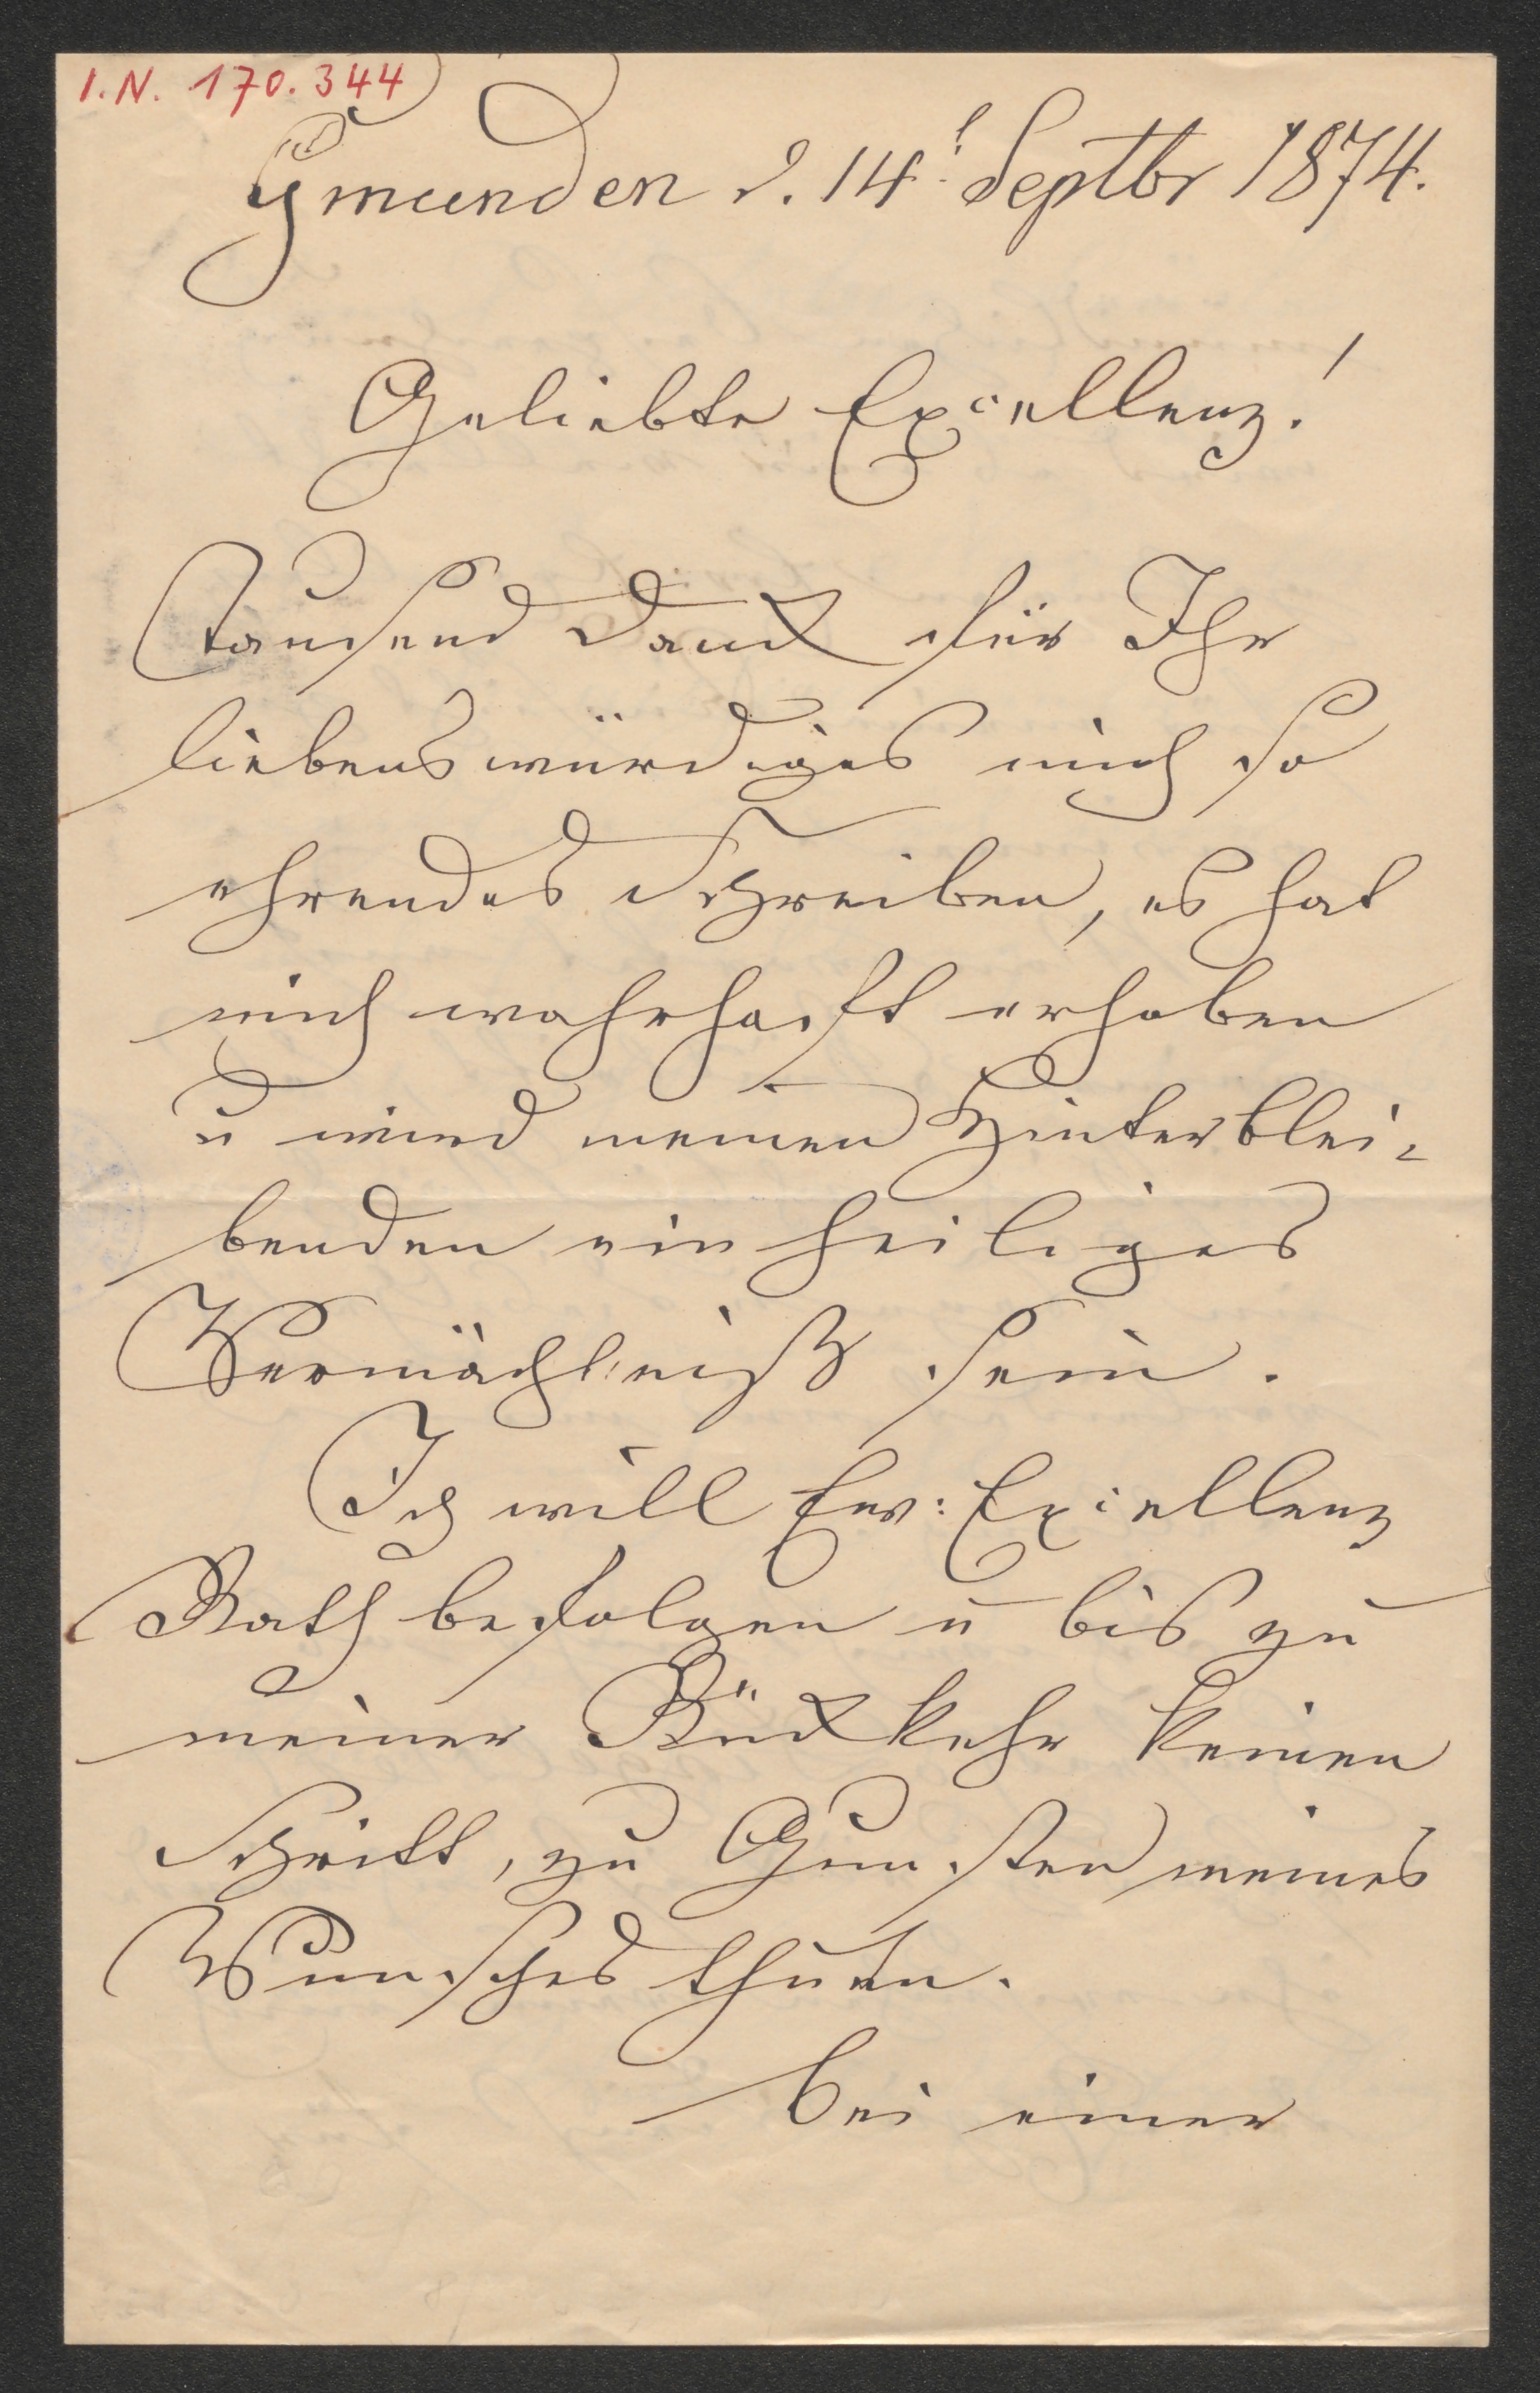 I.N. 170.344
Gmunden d. 14t Septbr 1874.
Geliebte Excellenz!
Tausend Dank für Ihr
liebenswürdiges mich so
ehrendes Schreiben, es hat
mich wahrhaft erhoben
u wird meinen Hinterblei-
benden ein heiliges
Vermächtniß sein.
Ich will Euer: Excellenz
Rath befolgen u bis zu
meiner Rückkehr keinen
Schritt, zu Gunsten meines
Wunsches thuen.
Bei einer